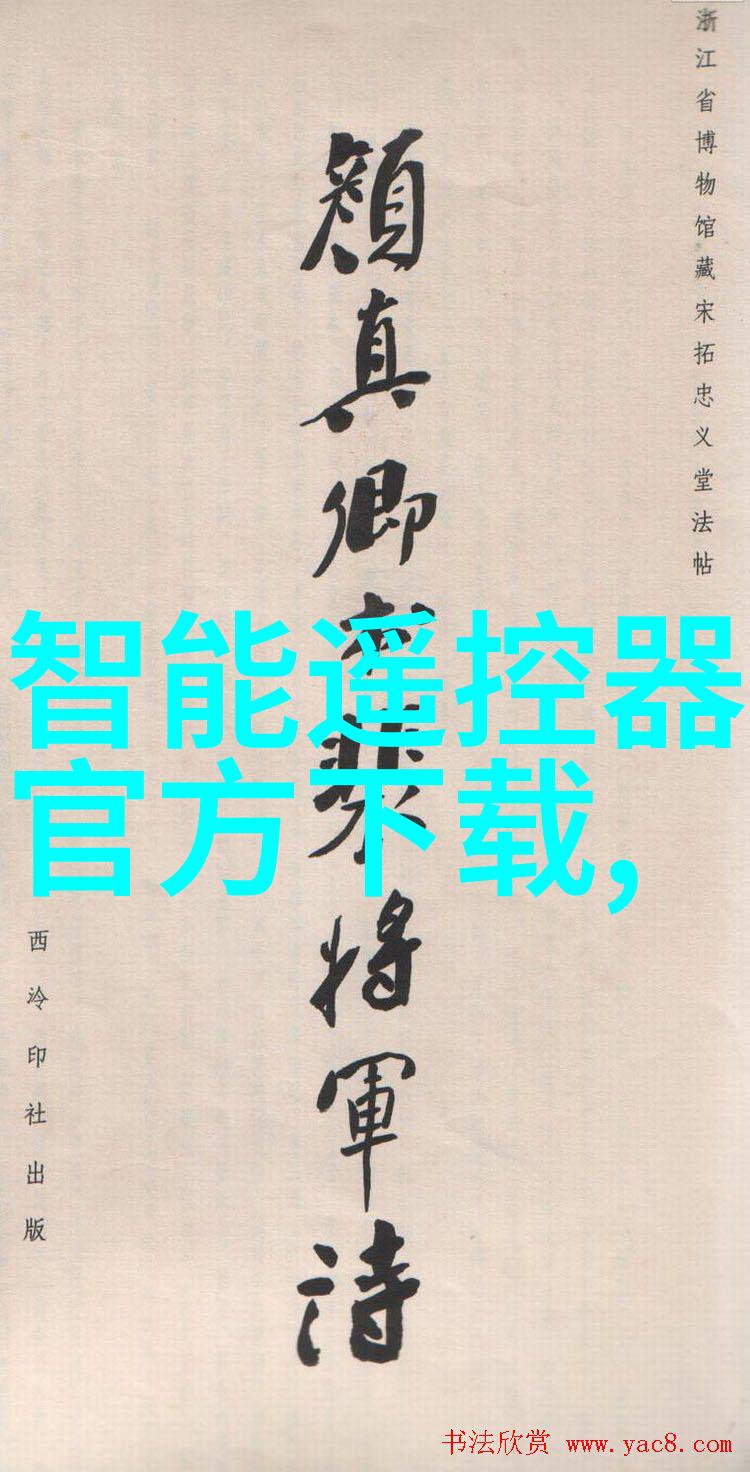 浙江省博物馆藏宋拓忠义堂法帖
顏真卿裴將軍詩
智能遥控器
官方下载,
西泠印社出版
书法欣赏 www.yac8.com